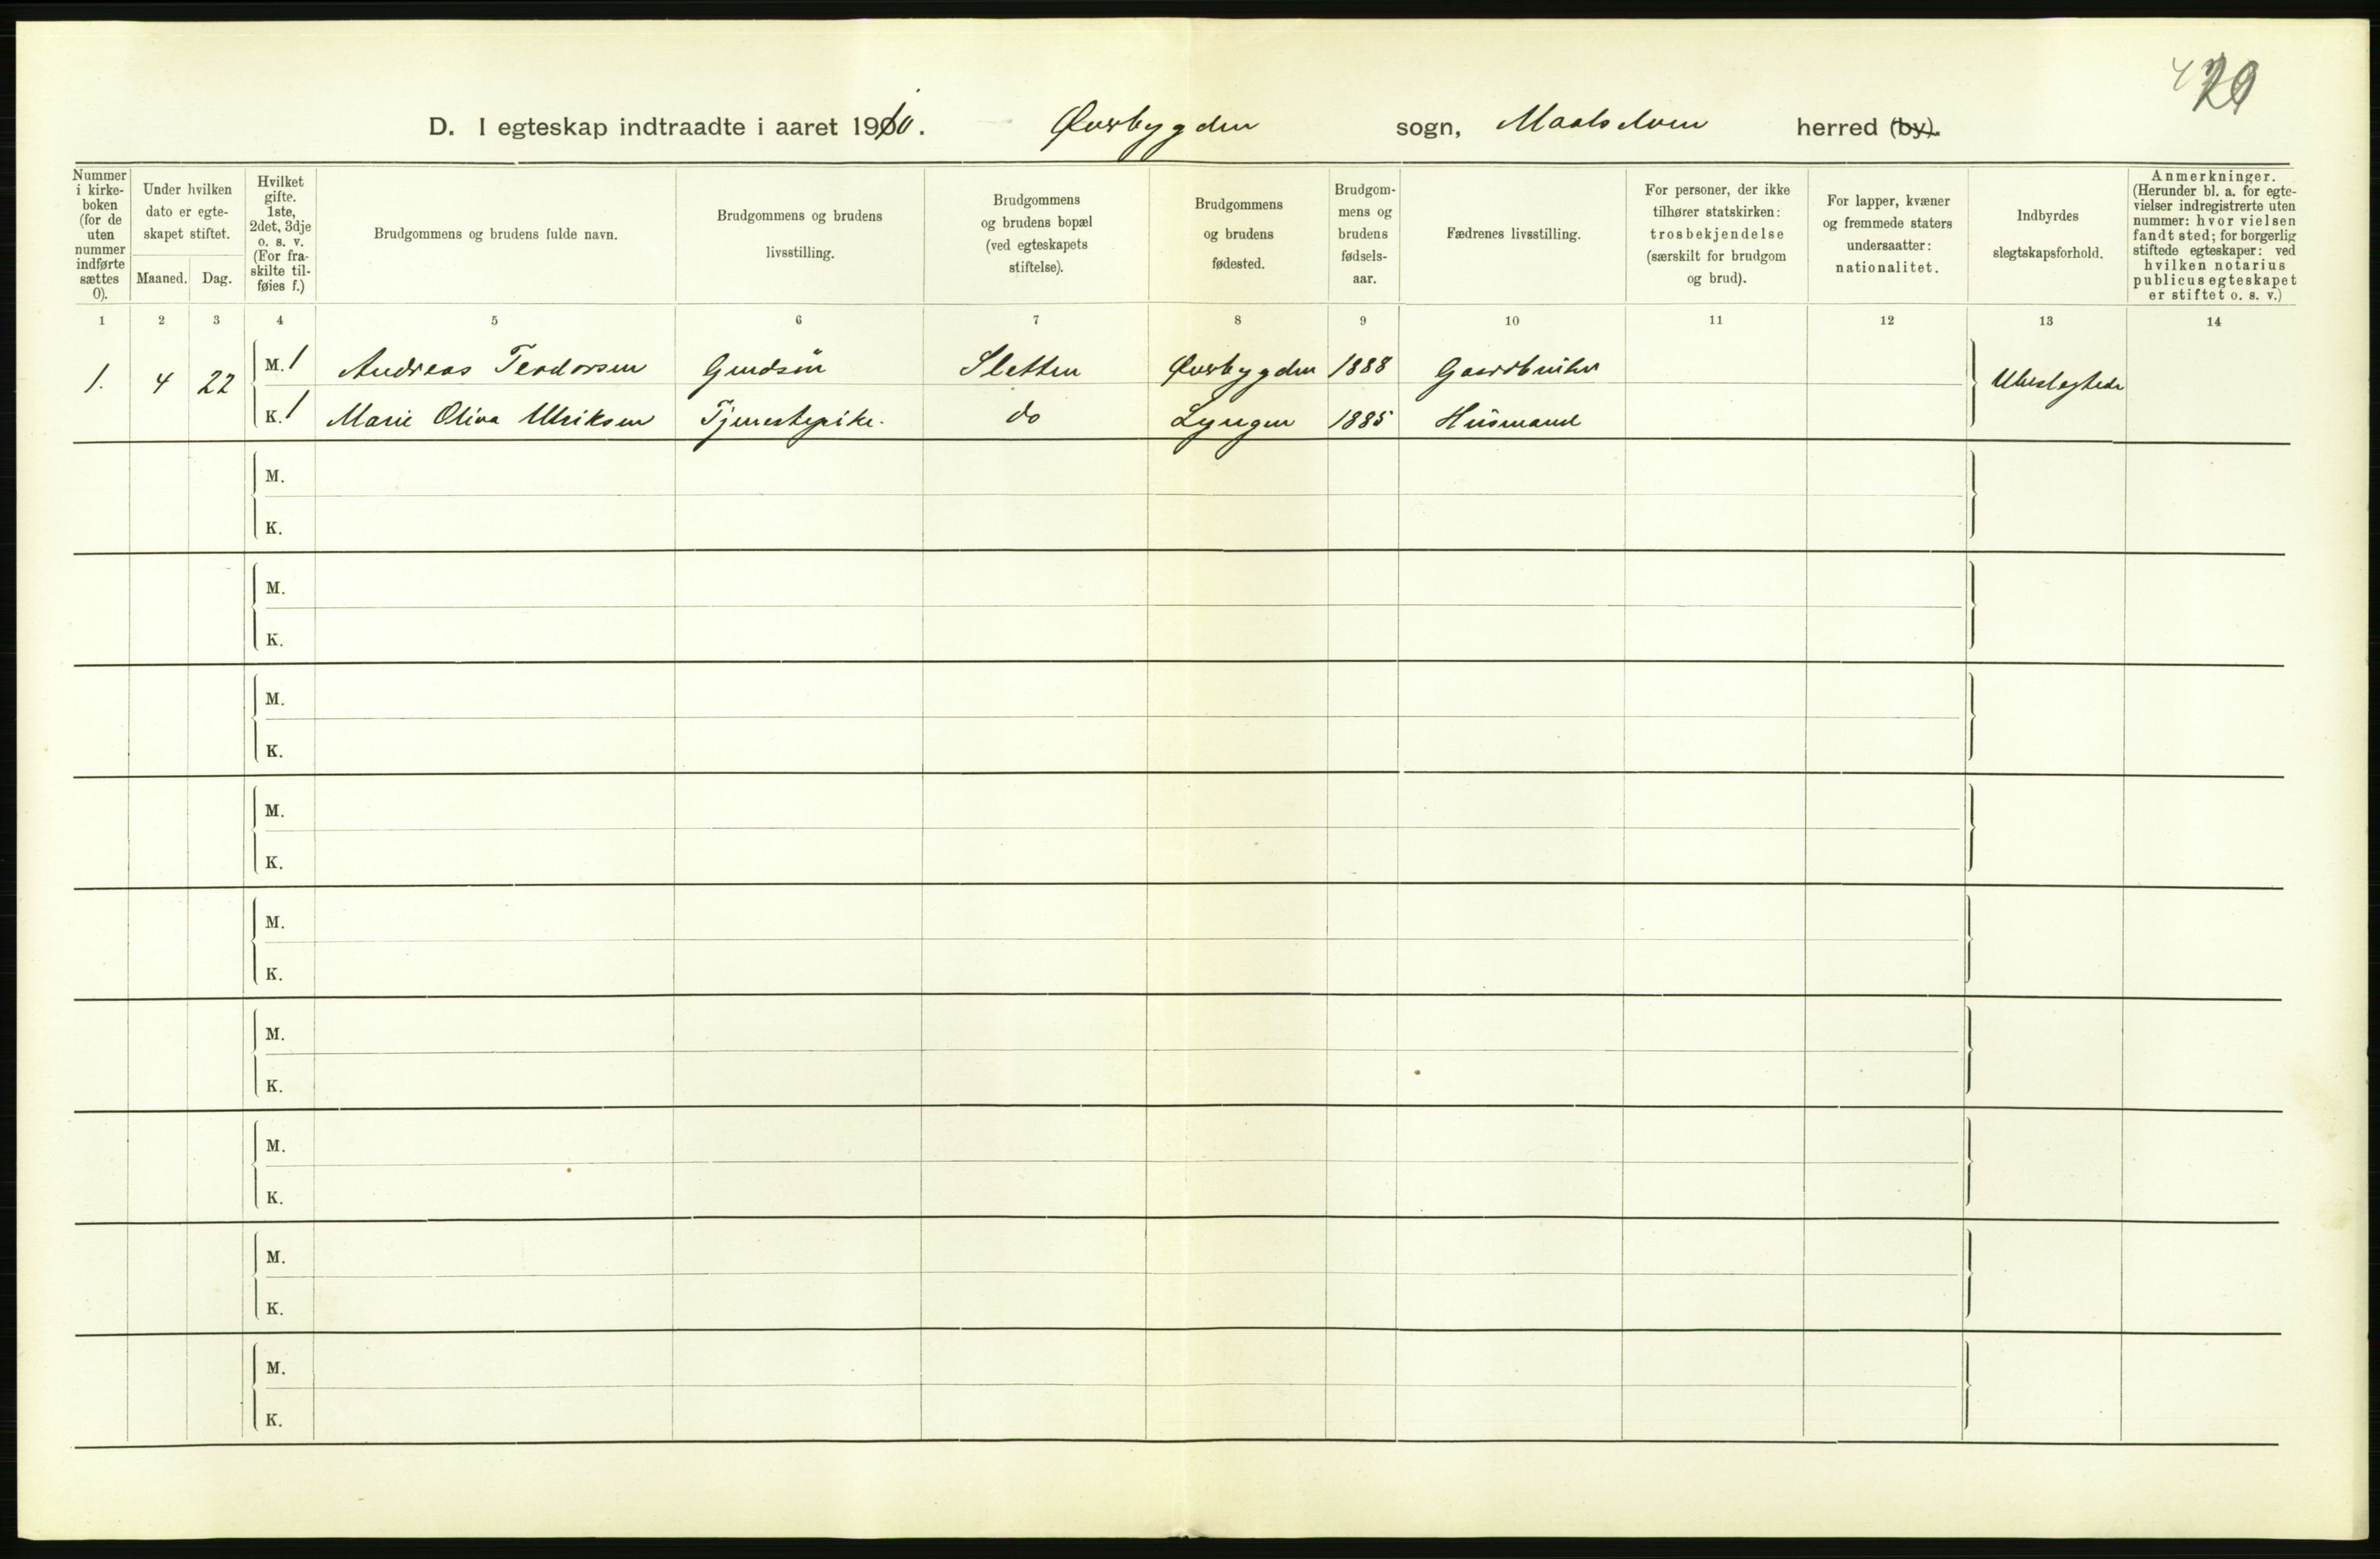 D. I egteskap indtraadte i aaret 1910. Øverbygden sogn, Maalselven herred (by).
Nummer i kirke-boken (for de uten nummer indførte sættes 0).
Under hvilken dato er egte-skapet stiftet.
Maaned. Dag.
Hvilket gifte. 1ste, 2det, 3dje o. s. v. (For fra-skilte til-føies f.)
Brudgommens og brudens fulde navn.
Brudgommens og brudens livsstilling.
Brudgommens og brudens bopæl (ved egteskapets stiftelse).
Brudgommens og brudens fødested.
Brudgom-mens og brudens fødsels-aar.
Fædrenes livsstilling.
For personer, der ikke tilhører statskirken: trosbekjendelse (særskilt for brudgom og brud).
For lapper, kvæner og fremmede staters undersaatter: nationalitet.
Indbyrdes slegtskapsforhold.
Anmerkninger. (Herunder bl. a. for egte-vielser indregistrerte uten nummer: hvor vielsen fandt sted; for borgerlig stiftede egteskaper: ved hvilken notarius publicus egteskapet er stiftet o. s. v.)
1 2 3 4 5 6 7 8 9 10 11 12 13 14
1. 4 22 M. 1 Andreas Teodorsen Gaardbruker Sletten Øverbygden 1888 Ubeslegtede
K. 1 Marie Oliva Ulriksen Tjenestepike. do Lyngen 1885 Husmand
M.
K.
M.
K.
M.
K.
M.
K.
M.
K.
M.
K.
M.
K.
M.
K.
M.
K.